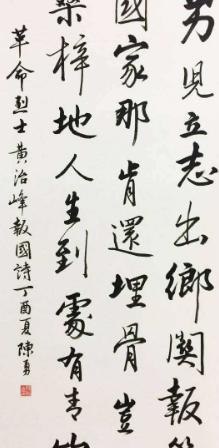 男兒立志出鄉關報答
國家那肯還埋骨豈
桑梓地人生到處有青山
革命烈士黃治峰報國詩丁酉夏陳勇